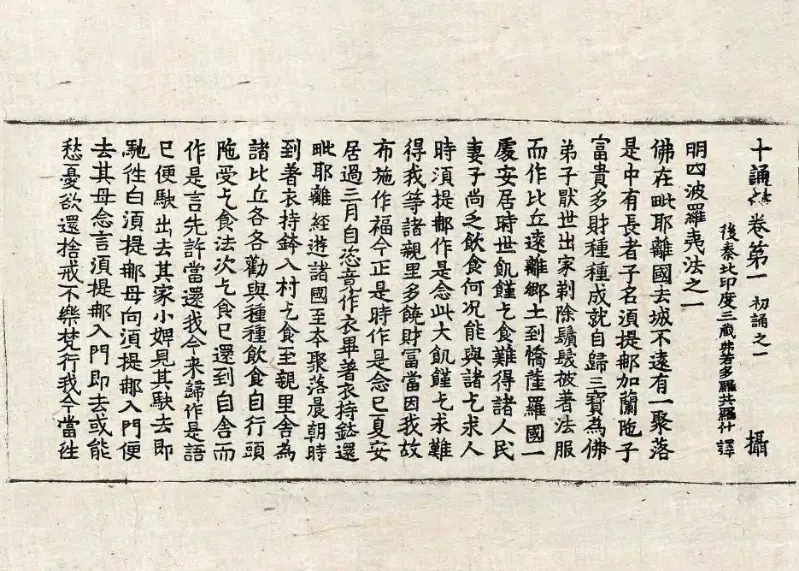 十誦律卷第一 初誦之一 攝
後秦北印度三藏弗若多羅共羅什譯
明四波羅夷法之一
佛在毗耶離國去城不遠有一聚落
是中有長者子名須提那加蘭陁子
富貴多財種種成就自歸三寶為佛
弟子厭世出家剃除鬚髮被著法服
而作比丘遠離鄉土到憍薩羅國一
處安居時世飢饉乞食難得諸人民
妻子尚乏飲食何況能與諸乞求人
時須提那作是念此大飢饉乞求難
得我等諸親里多饒財冨當因我故
布施作福今正是時作是念已夏安
居過三月自恣竟作衣畢著衣持鉢還
毗耶離經遊諸國至本聚落晨朝時
到著衣持鉢入村乞食至親里舍為
諸比丘各各勸與種種飲食自行頭
陁受乞食法次乞食已還到自舍而
作是言先許當還我今来歸作是語
已便駃出去其家小婢見其駃去即
馳往白須提那母向須提那入門便
去其母念言須提那入門即去或能
愁憂欲還捨戒不樂梵行我今當往